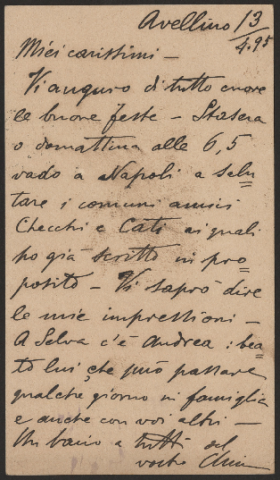 Avellino 13/4.95
Miei carissimi —
Vi auguro di tutto cuore
le buone feste — Stasera
o domattina alle 6,5
vado a Napoli a salu-
tare i comuni amici
Checchi e Cati ai quali
ho già scritto in pro-
posito — Vi saprò dire
le mie impressioni —
A Selva c'è Andrea: bea-
to lui che può passare
qualche giorno in famiglia
e anche con voi altri —
Un bacio a tutti dal
vostro